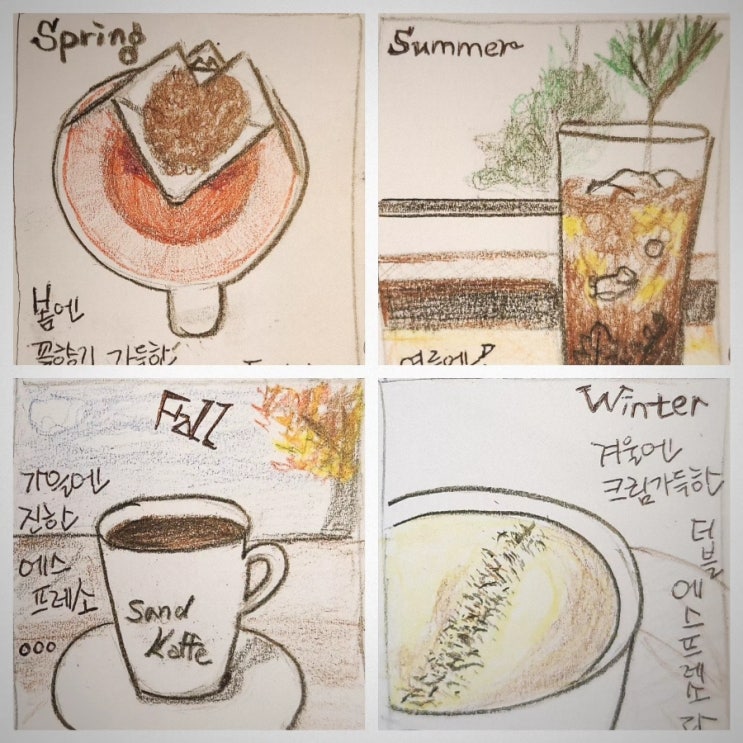 Spring
봄엔
꽃향기 가득한
Summer
여름엔
Fall
가을엔
진한
에스
프레소
ooo
Sand
Kaffe
Winter
겨울엔
크림가득한
터블
에스프레소